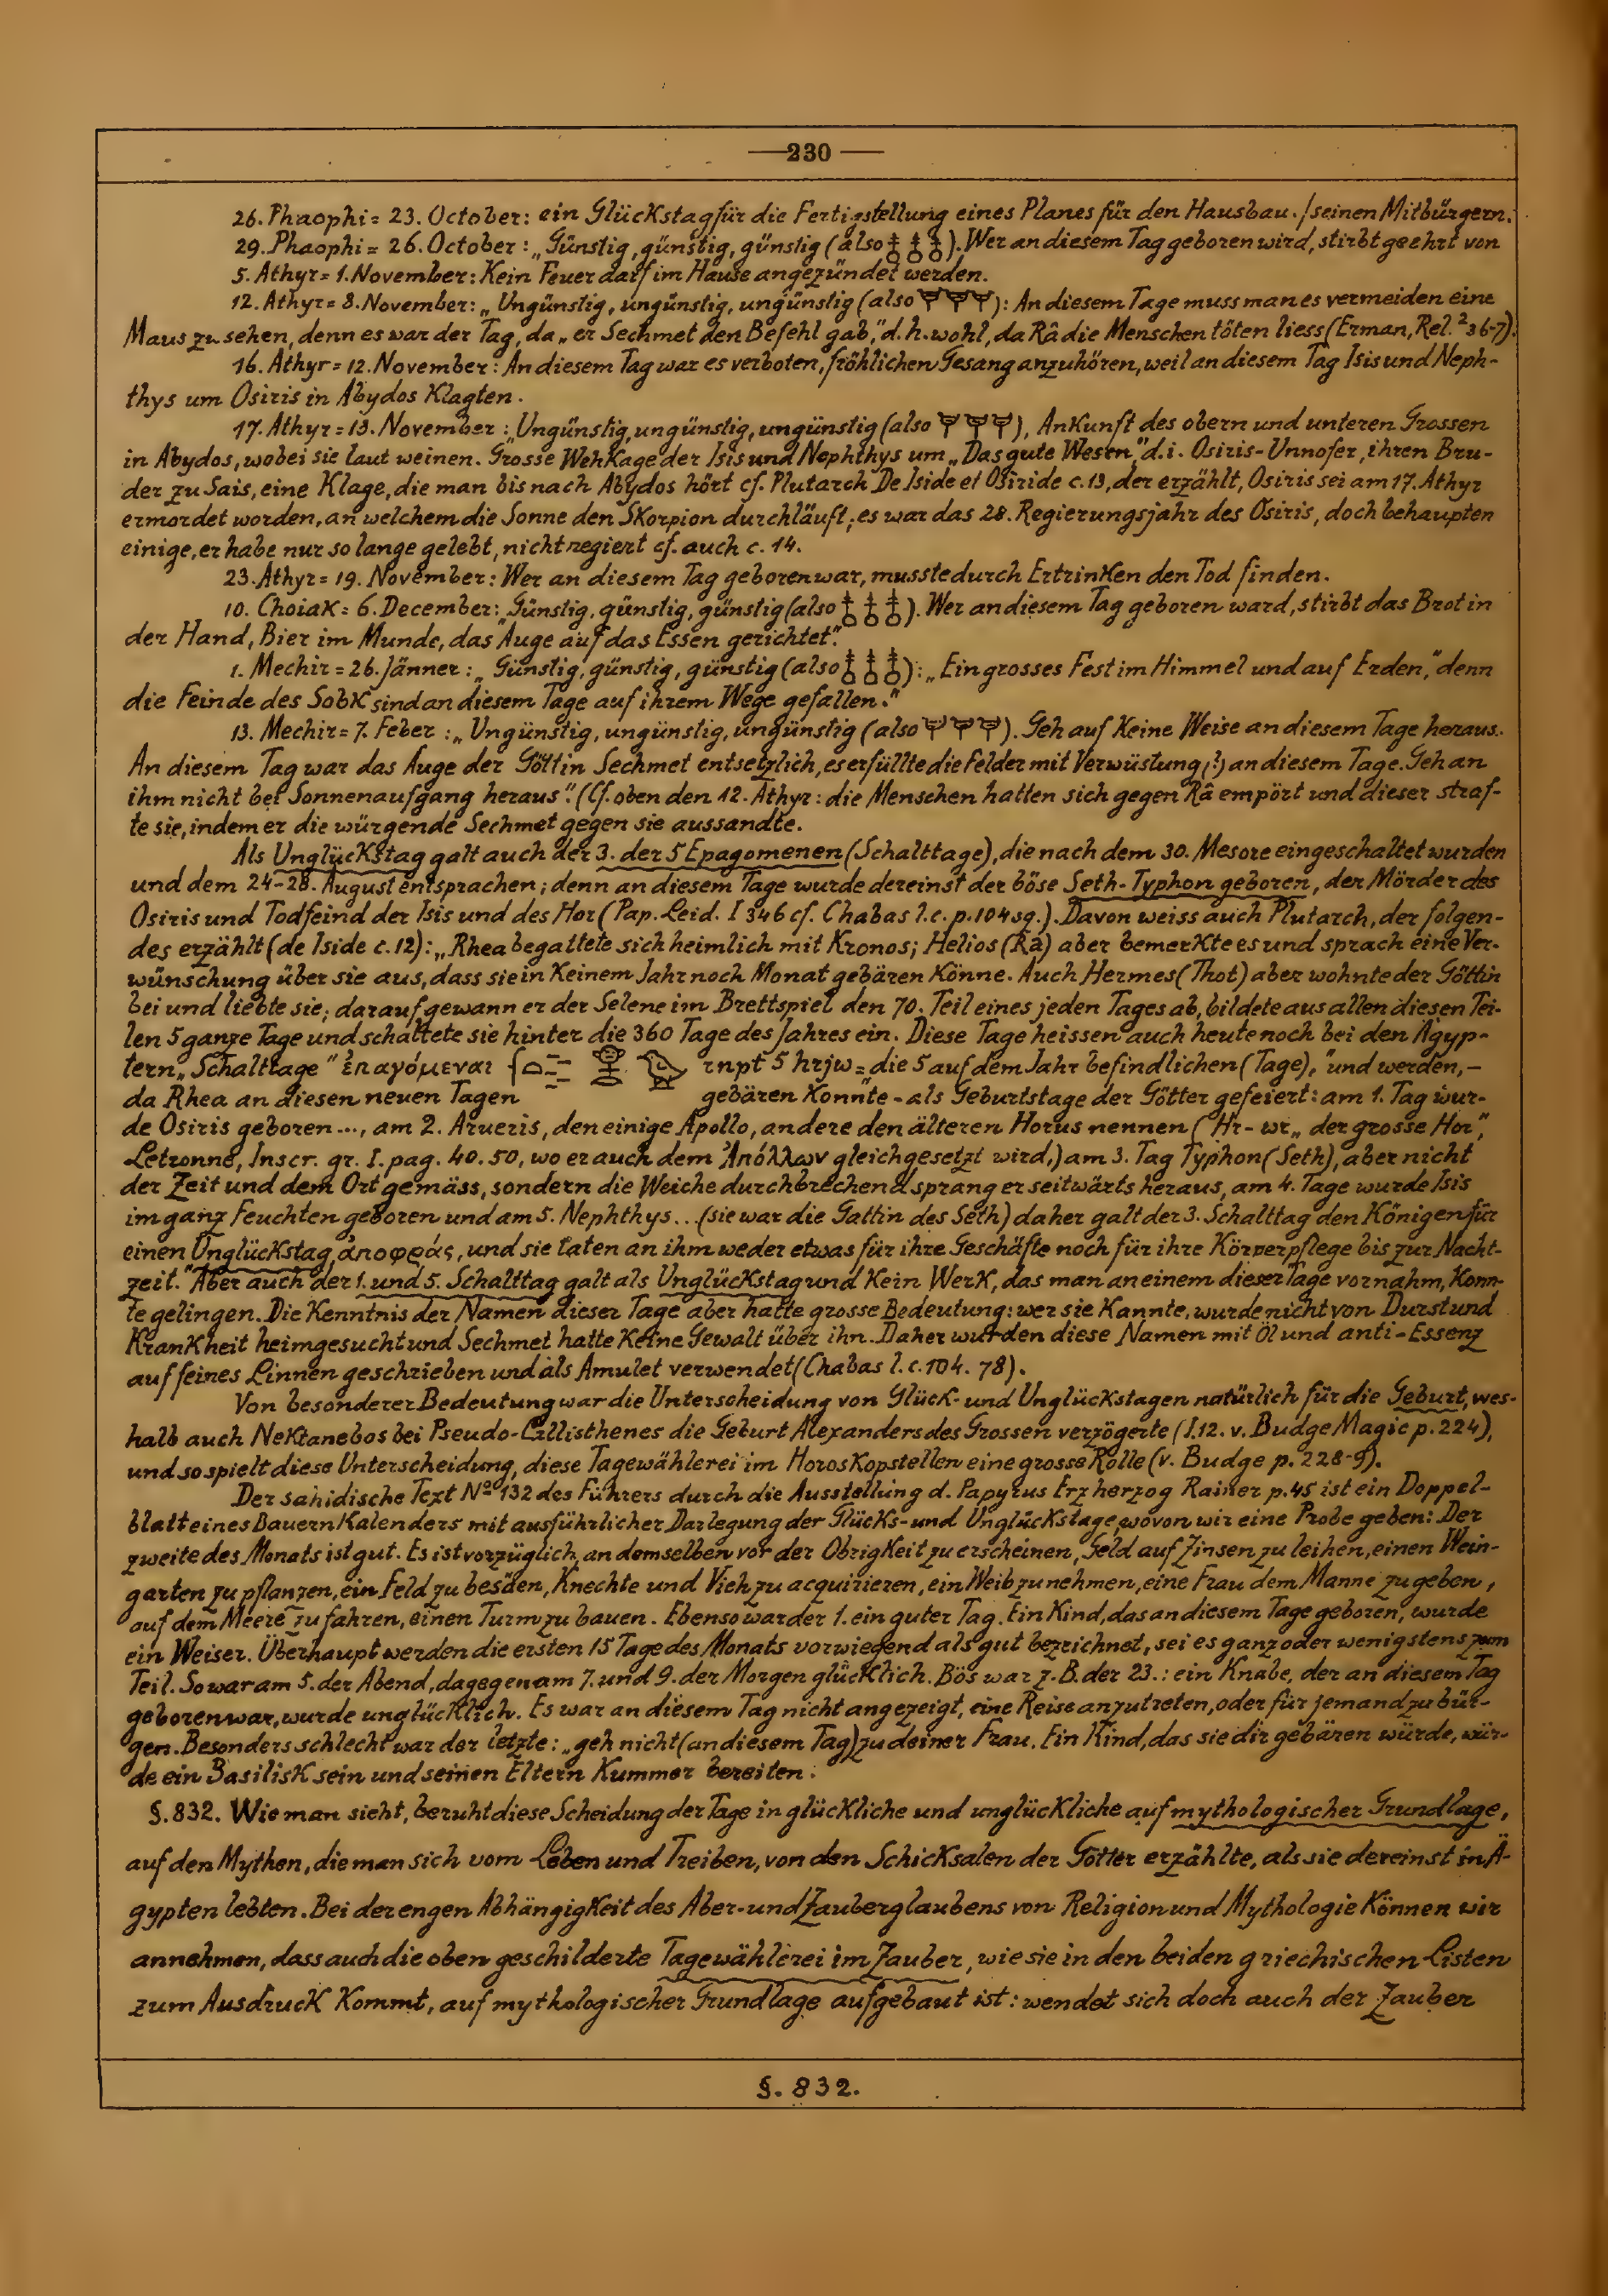 —230—
26. Phaophi = 23. October: ein Glückstag für die Fertigstellung eines Planes für den Hausbau. / seinen Mitbürgern.
29. Phaophi = 26. October: „Günstig, günstig, günstig (also 𓄤 𓄤 𓄤). Wer an diesem Tag geboren wird, stirbt geehrt von
5. Athyr = 1. November: Kein Feuer darf im Hause angezündet werden.
12. Athyr = 8. November: „Ungünstig, ungünstig, ungünstig (also): An diesem Tage muss man es vermeiden eine
Maus zu sehen, denn es war der Tag, da „er Sechmet den Befehl gab," d. h. wohl, da Râ die Menschen töten liess (Erman, Rel.² 36-7).
16. Athyr = 12. November: An diesem Tag war es verboten, fröhlichen Gesang anzuhören, weil an diesem Tag Isis und Neph-
thys um Osiris in Abydos klagten.
17. Athyr = 13. November: „Ungünstig, ungünstig, ungünstig (also), Ankunft des obern und unteren Grossen
in Abydos, wobei sie laut weinen. Grosse Wehkage der Isis und Nephthys um „Das gute Wesen" d. i. Osiris-Unnofer, ihren Bru-
der zu Sais, eine Klage, die man bis nach Abydos hört cf. Plutarch De Iside et Osiride c. 13, der erzählt, Osiris sei am 17. Athyr
ermordet worden, an welchem die Sonne den Skorpion durchläuft; es war das 28. Regierungsjahr des Osiris, doch behaupten
einige, er habe nur so lange gelebt, nicht regiert cf. auch c. 14.
23. Athyr = 19. November: Wer an diesem Tag geboren war, musste durch Ertrinken den Tod finden.
10. Choiak = 6. December: „Günstig, günstig, günstig (also 𓄤 𓄤 𓄤). Wer an diesem Tag geboren ward, stirbt das Brot in
der Hand, Bier im Munde, das Auge auf das Essen gerichtet".
1. Mechir = 26. Jänner: „Günstig, günstig, günstig (also 𓄤 𓄤 𓄤): „Ein grosses Fest im Himmel und auf Erden," denn
die Feinde des Sobk sind an diesem Tage auf ihrem Wege gefallen."
13. Mechir = 7. Feber: „Ungünstig, ungünstig, ungünstig (also). Geh auf keine Weise an diesem Tage heraus.
An diesem Tag war das Auge der Göttin Sechmet entsetzlich, es erfüllte die Felder mit Verwüstung (?) an diesem Tage. Geh an
ihm nicht bei Sonnenaufgang heraus". (Cf. oben den 12. Athyr: die Menschen hatten sich gegen Râ empört und dieser straf-
te sie, indem er die würgende Sechmet gegen sie aussandte.
Als Unglückstag galt auch der 3. der 5 Epagomenen (Schalttage), die nach dem 30. Mesore eingeschaltet wurden
und dem 24-28. August entsprachen; denn an diesem Tage wurde dereinst der böse Seth-Typhon geboren, der Mörder des
Osiris und Todfeind der Isis und des Hor (Pap. Leid. I 346 cf. Chabas l. c. p. 104 sq.). Davon weiss auch Plutarch, der folgen-
des erzählt (de Iside c. 12): „Rhea begattete sich heimlich mit Kronos; Helios (Râ) aber bemerkte es und sprach eine Ver-
wünschung über sie aus, dass sie in keinem Jahr noch Monat gebären könne. Auch Hermes (Thot) aber wohnte der Göttin
bei und liebte sie; darauf gewann er der Selene im Brettspiel den 70. Teil eines jeden Tages ab, bildete aus allen diesen Tei-
len 5 ganze Tage und schaltete sie hinter die 360 Tage des Jahres ein. Diese Tage heissen auch heute noch bei den Ägyp-
tern „Schalttage" ἐπαγόμεναι rnpt 5 hrjw = die 5 auf dem Jahr befindlichen (Tage)," und werden, –
da Rhea an diesen neuen Tagen gebären konnte – als Geburtstage der Götter gefeiert: am 1. Tag wur-
de Osiris geboren ..., am 2. Arueris, den einige Apollo, andere den älteren Horus nennen ("Hr-wr „der grosse Hor",
Letronne, Inscr. gr. I. pag. 40. 50, wo er auch dem Ἀπόλλων gleichgesetzt wird,) am 3. Tag Typhon (Seth), aber nicht
der Zeit und dem Ort gemäss, sondern die Weiche durchbrechend sprang er seitwärts heraus, am 4. Tage wurde Isis
im ganz Feuchten geboren und am 5. Nephthys... (sie war die Gattin des Seth) daher galt der 3. Schalttag den Königen für
einen Unglückstag, ἀποφράς, und sie taten an ihm weder etwas für ihre Geschäfte noch für ihre Körperpflege bis zur Nacht-
zeit." Aber auch der 1. und 5. Schalttag galt als Unglückstag und kein Werk, das man an einem dieser Tage vornahm, konn-
te gelingen. Die Kenntnis der Namen dieser Tage aber hatte grosse Bedeutung: wer sie kannte, wurde nicht von Durst und
Krankheit heimgesucht und Sechmet hatte keine Gewalt über ihn. Daher wurden diese Namen mit Öl und anti-Essenz
auf feines Linnen geschrieben und als Amulet verwendet (Chabas l. c. 104. 78).
Von besonderer Bedeutung war die Unterscheidung von Glück- und Unglückstagen natürlich für die Geburt, wes-
halb auch Nektanebos bei Pseudo-Callisthenes die Geburt Alexanders des Grossen verzögerte (I. 12. v. Budge Magic p. 224),
und so spielt diese Unterscheidung, diese Tagewählerei im Horoskopstellen eine grosse Rolle (v. Budge p. 228-9).
Der sahidische Text Nº 132 des Führers durch die Ausstellung d. Papyrus Erzherzog Rainer p. 45 ist ein Doppel-
blatt eines Bauernkalenders mit ausführlicher Darlegung der Glücks- und Unglückstage, wovon wir eine Probe geben: Der
zweite des Monats ist gut. Es ist vorzüglich, an demselben vor der Obrigkeit zu erscheinen, Geld auf Zinsen zu leihen, einen Wein-
garten zu pflanzen, ein Feld zu besäen, Knechte und Vieh zu acquirieren, ein Weib zu nehmen, eine Frau dem Manne zu geben,
auf dem Meere zu fahren, einen Turm zu bauen. Ebenso war der 1. ein guter Tag. Ein Kind, das an diesem Tage geboren, wurde
ein Weiser. Überhaupt werden die ersten 15 Tage des Monats vorwiegend als gut bezeichnet, sei es ganz oder wenigstens zum
Teil. So war am 5. der Abend, dagegen am 7. und 9. der Morgen glücklich. Bös war z. B. der 23.: ein Knabe, der an diesem Tag
geboren war, wurde unglücklich. Es war an diesem Tag nicht angezeigt, eine Reise anzutreten, oder für jemand zu bür-
gen. Besonders schlecht war der letzte: „geh nicht (an diesem Tag) zu deiner Frau. Ein Kind, das sie dir gebären würde, wür-
de ein Basilisk sein und seinen Eltern Kummer bereiten.
§. 832. Wie man sieht, beruht diese Scheidung der Tage in glückliche und unglückliche auf mythologischer Grundlage,
auf den Mythen, die man sich vom Leben und Treiben, von den Schicksalen der Götter erzählte, als sie dereinst in Ä-
gypten lebten. Bei der engen Abhängigkeit des Aber- und Zauberglaubens von Religion und Mythologie können wir
annehmen, dass auch die oben geschilderte Tagewählerei im Zauber, wie sie in den beiden griechischen Listen
zum Ausdruck kommt, auf mythologischer Grundlage aufgebaut ist: wendet sich doch auch der Zauber
§. 832.